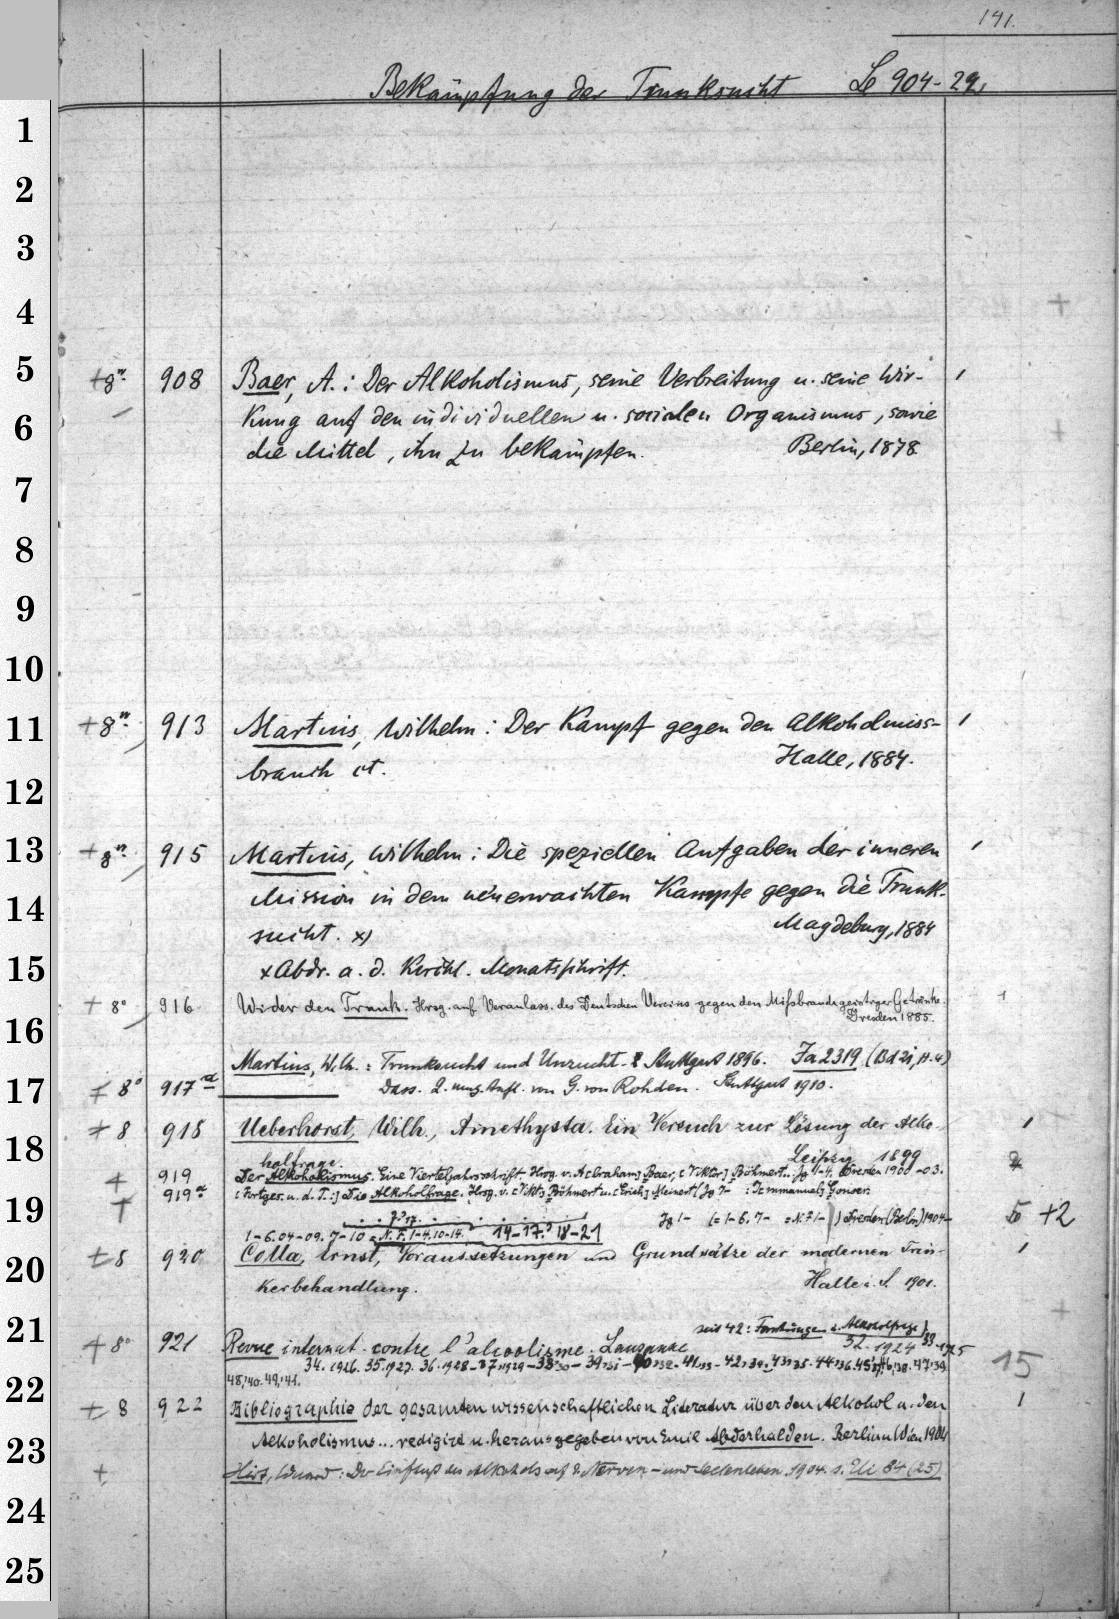 141.
Bekämpfung der Trunksucht Le 904-29.
1
2
3
4
5
6
7
8
9
10
11
12
13
14
15
16
17
18
19
20
21
22
23
24
25
+8° 908 Baer, A.: Der Alkoholismus, seine Verbreitung u. seine Wir-
kung auf den individuellen u. socialen Organismus, sowie
die Mittel, ihn zu bekämpfen. Berlin, 1878
+8° 913 Martius, Wilhelm: Der Kampf gegen den Alkoholmiss-
brauch ct. Halle, 1884.
+8° 915 Martius, Wilhelm: Die speziellen Aufgaben der inneren
Mission in dem neuerwachten Kampfe gegen die Trunk-
sucht. x) Magdeburg, 1884
x Abdr. a. d. Kirchl. Monatsschrift.
+8° 916 Wider den Trunk. Hrsg. auf Veranlass. des Deutschen Vereins gegen den Mißbrauch geistiger Getränke.
Dresden 1885.
Martius, Wilh.: Trunksucht und Unzucht. Stuttgart 1896. Ja 2319 (Bd 21, H. 4)
+8° 917 a Dass. 2. umg. Aufl. von G. von Rohden. Stuttgart 1910.
+8 918 Ueberhorst, Wilh., Amethysta. Ein Versuch zur Lösung der Alko-
holfrage. Leipzig 1899
+ 919 Der Alkoholismus. Eine Vierteljahrsschrift. Hrsg. v. A[braham] Baer, [Viktor] Böhmert.. Jg 1-4. Dresden 1900-03.
+ 919 a [Fortges. u. d. T.:] Die Alkoholfrage. Hrsg. v. [Vikt] Böhmert u. [Erich] Meinert (Jg 7- : I[mmanuel] Gonser.
Jg 1- (= 1-6. 7- = N.F 1- ) Dresden (Berlin) 1904- 5 +2
1-6. 04-09. 7-10 = N.F. 1-4. 10-14. 14-17. 18-21
+8 920 Colla, Ernst, Voraussetzungen und Grundsätze der modernen Trin-
kerbehandlung. Halle a. S. 1901.
seit 42: Forschungen z. Alkoholfrage
+8° 921 Revue internat. contre l'alcoolisme. Lausanne 32. 1924 33. 1925
34. 1926. 35. 1927. 36. 1928 - 37. 1929 - 38. 30 - 39. 31 - 40. 32 - 41. 33 - 42. 34. 43. 35. 44. 36. 45. 37. 46. 38. 47. 39. 15
48. 40. 49. 41.
+8 922 Bibliographie der gesamten wissenschaftlichen Literatur über den Alkohol u. den
Alkoholismus... redigirt u. herausgegeben von Emil Abderhalden. Berlin u. Wien 1904
+ Hirt, Eduard: Der Einfluß des Alkohols auf d. Nerven- und Seelenleben. 1904. s. Eli 84 (25)